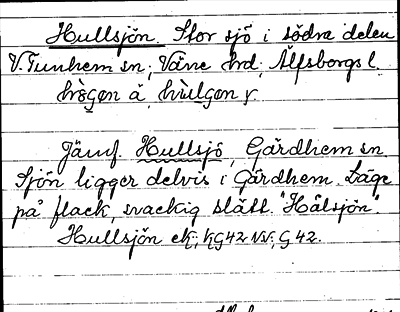 Hullsjön. Stor sjö i södra delen
V. Tunhem sn; Väne hrd; Älfsborgs l.
Jämf. Hullsjö, Gärdhem sn.
Sjön ligger delvis i Gärdhem. Läge
på flack, svackig slätt. "Hålsjön".
Hullsjön ek; G42 NV; G 42.